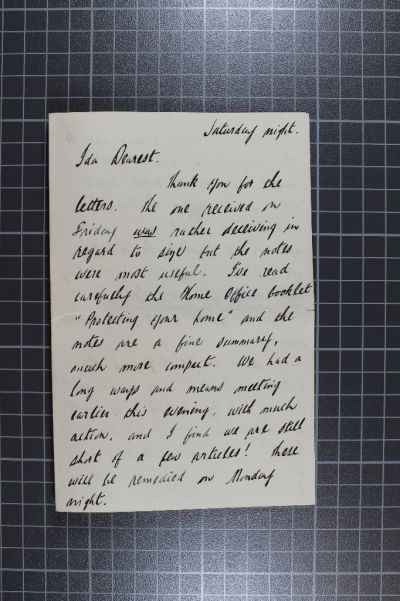 Saturday night.
Ida Dearest.
Thank you for the
letters. The one received on
Friday was rather deceiving in
regard to size but the notes
were most useful. I've read
carefully the Home Office booklet
"Protecting your home" and the
notes are a fine summary,
much more compact. We had a
long ways and means meeting
earlier this evening, with much
action, and I find we are still
short of a few articles! These
will be remedied on Monday
night.